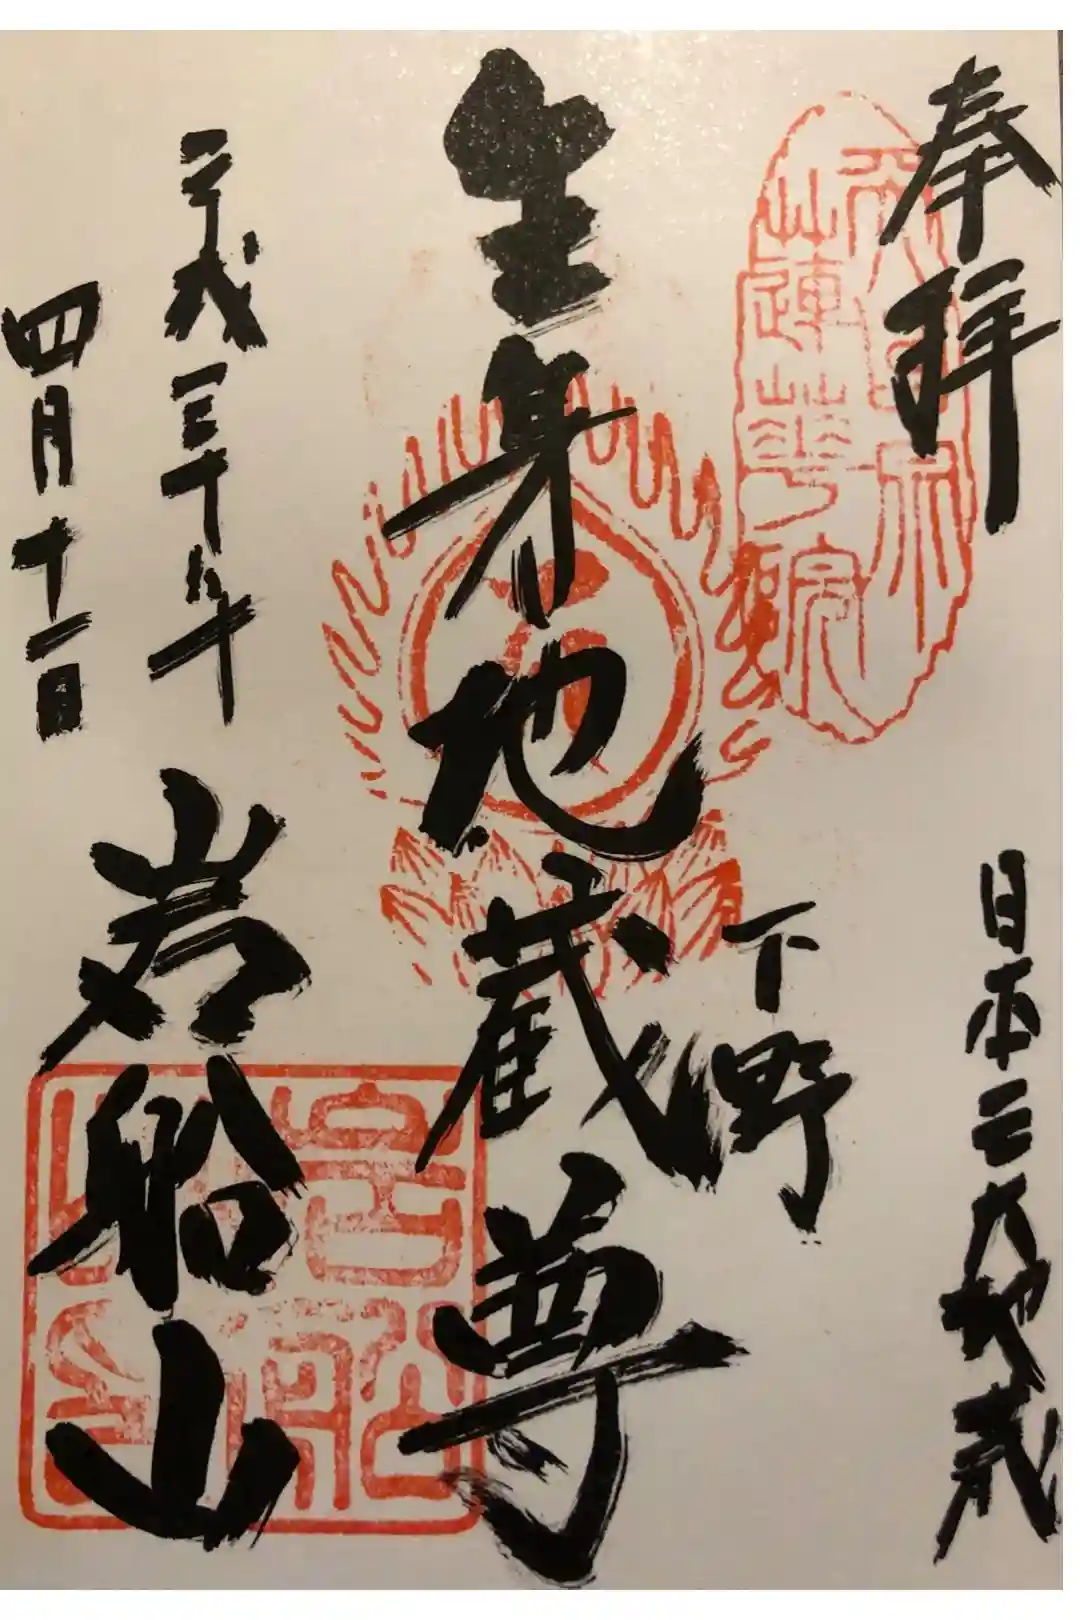 奉拝
日本三大地蔵
下野
生身地蔵尊
平成三十年
四月十一日
岩船山
蓮華院
岩船山